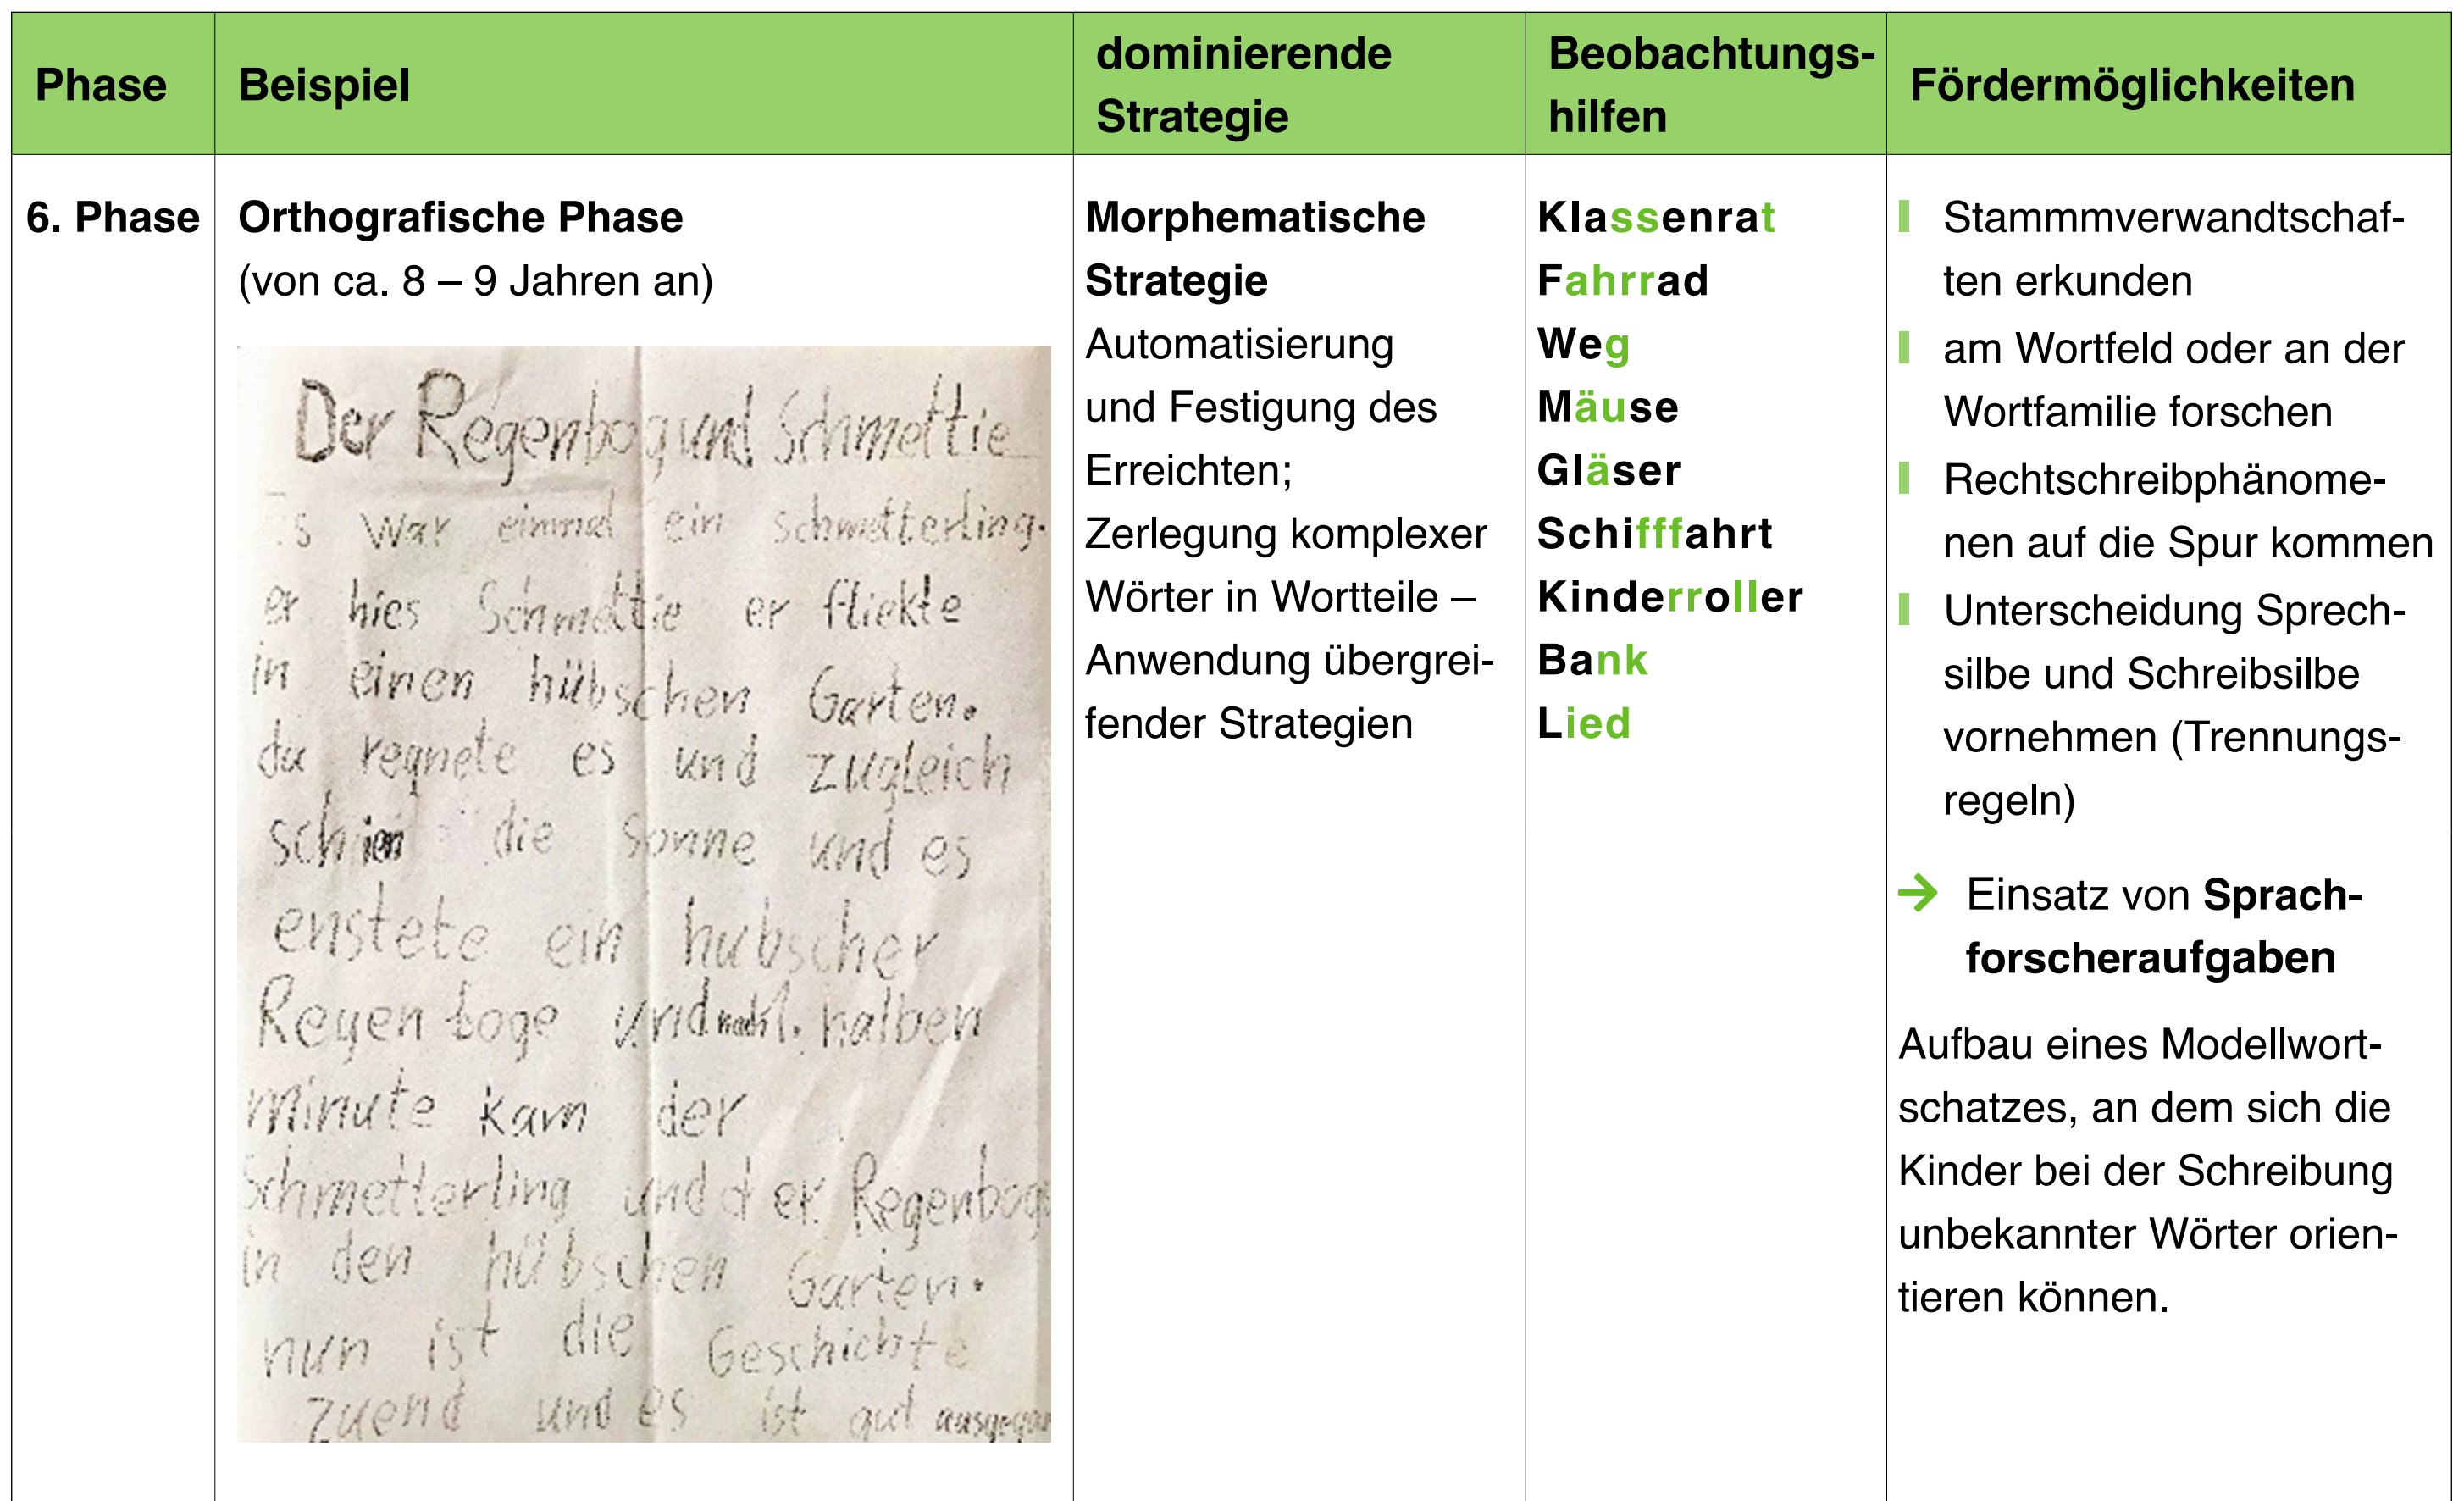 Phase
Beispiel
dominierende
Strategie
Beobachtungs-
hilfen
Fördermöglichkeiten
6. Phase
Orthografische Phase
(von ca. 8 – 9 Jahren an)
Der Regenbog und Schmettie
Es war einmal ein schmetterling.
er hies Schmettie er fliekte
in einen hübschen Garten.
da regnete es und zugleich
schien die sonne und es
enstete ein hubscher
Regen boge und halben
minute kam der
Schmetterling und der Regenboge
in den hübschen Garten.
nun ist die Geschichte
zuend und es ist gut
Morphematische
Strategie
Automatisierung
und Festigung des
Erreichten;
Zerlegung komplexer
Wörter in Wortteile –
Anwendung übergrei-
fender Strategien
Klassenrat
Fahrrad
Weg
Mäuse
Gläser
Schifffahrt
Kinderroller
Bank
Lied
Stammmverwandtschaf-
ten erkunden
am Wortfeld oder an der
Wortfamilie forschen
Rechtschreibphänome-
nen auf die Spur kommen
Unterscheidung Sprech-
silbe und Schreibsilbe
vornehmen (Trennungs-
regeln)
→ Einsatz von Sprach-
forscheraufgaben
Aufbau eines Modellwort-
schatzes, an dem sich die
Kinder bei der Schreibung
unbekannter Wörter orien-
tieren können.